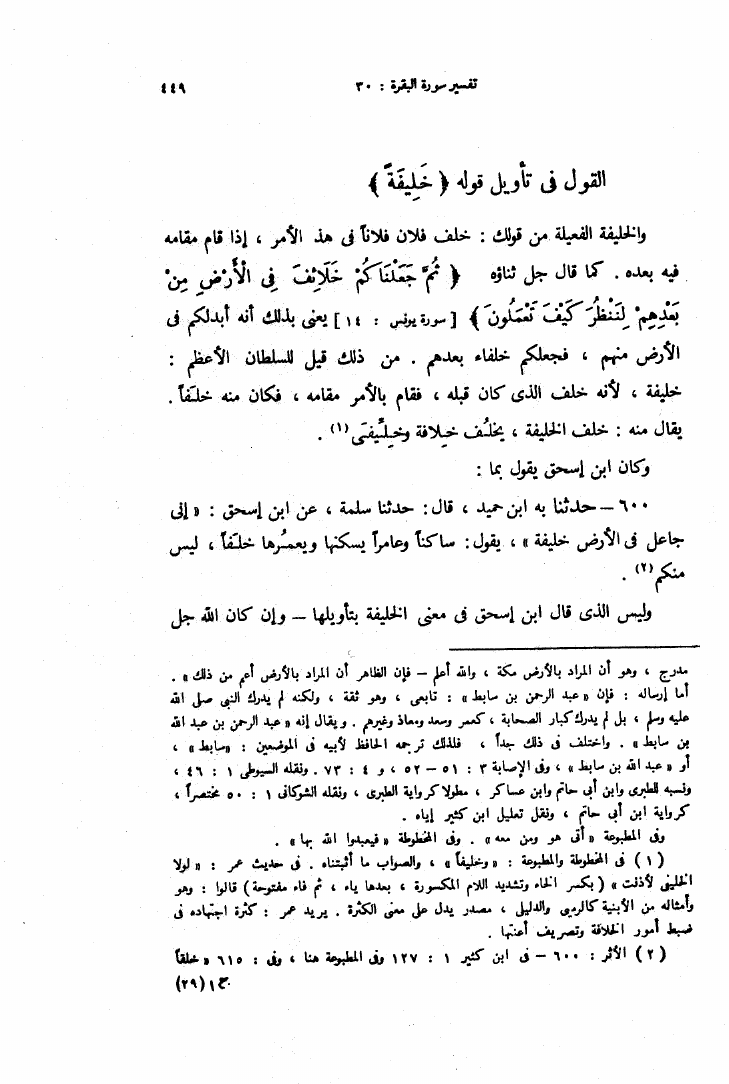 تفسير سورة البقرة : ٣٠ ٤٤٩
القول فى تأويل قوله ﴿ خَلِيفَةً ﴾
والخليفة الفعيلة من قولك : خلف فلان فلاناً فى هذا الأمر ، إذا قام مقامه
فيه بعده . كما قال جل ثناؤه ﴿ ثُمَّ جَعَلْنَاكُمْ خَلَائِفَ فِى الْأَرْضِ مِنْ
بَعْدِهِمْ لِنَنْظُرَ كَيْفَ تَعْمَلُونَ ﴾ [ سورة يونس : ١٤ ] يعنى بذلك أنه أبدلكم فى
الأرض منهم ، فجعلكم خلفاء بعدهم . من ذلك قيل للسلطان الأعظم :
خليفة ، لأنه خلف الذى كان قبله ، فقام بالأمر مقامه ، فكان منه خلَفاً .
يقال منه : خلف الخليفة ، يخلُف خِلافة وخِلِّيفَى (١) .
وكان ابن إسحق يقول بما :
٦٠٠ – حدثنا به ابن حميد ، قال : حدثنا سلمة ، عن ابن إسحق : « إنى
جاعل فى الأرض خليفة » ، يقول : ساكناً وعامراً يسكنها ويعمُرها خلَفاً ، ليس
منكم (٢) .
وليس الذى قال ابن إسحق فى معنى الخليفة بتأويلها – وإن كان الله جل
مدرج ، وهو أن المراد بالأرض مكة ، والله أعلم – فإن الظاهر أن المراد بالأرض أعم من ذلك » .
أما إرساله : فإن « عبد الرحمن بن سابط » : تابعى ، وهو ثقة ، ولكنه لم يدرك النبى صلى الله
عليه وسلم ، بل لم يدرك كبار الصحابة ، كعمر وسعد ومعاذ وغيرهم . ويقال إنه « عبد الرحمن بن عبد الله
بن سابط » . واختلف فى ذلك جداً ، فلذلك ترجمه الحافظ لأبيه فى الموضعين : « سابط » ،
أو « عبد الله بن سابط » ، وفى الإصابة ٣ : ٥١ – ٥٢ ، و ٤ : ٧٣ . ونقله السيوطى ١ : ٤٦ ،
ونسبه للطبرى وابن أبى حاتم وابن عساكر ، مطولا كرواية الطبرى ، ونقله الشوكانى ١ : ٥٠ مختصراً ،
كرواية ابن أبى حاتم ، ونقل تعليل ابن كثير إياه .
وفى المطبوعة « أتى هو ومن معه » . وفى المخطوطة « فيعبدوا الله بها » .
( ١ ) فى المخطوطة والمطبوعة : « وخليفاً » ، والصواب ما أثبتناه . فى حديث عمر : « لولا
الخليفى لأذنت » ( بكسر الخاء وتشديد اللام المكسورة ، بعدها ياء ، ثم فاء مفتوحة ) قالوا : وهو
وأمثاله من الأبنية كالرميى والدليلى ، مصدر يدل على معنى الكثرة . يريد عمر : كثرة اجتهاده فى
ضبط أمور الخلافة وتصريف أعنتها .
( ٢ ) الأثر : ٦٠٠ – فى ابن كثير ١ : ١٢٧ وفى المطبوعة هنا ، وفى : ٦١٥ « خلقاً
ج ١ (٢٩)